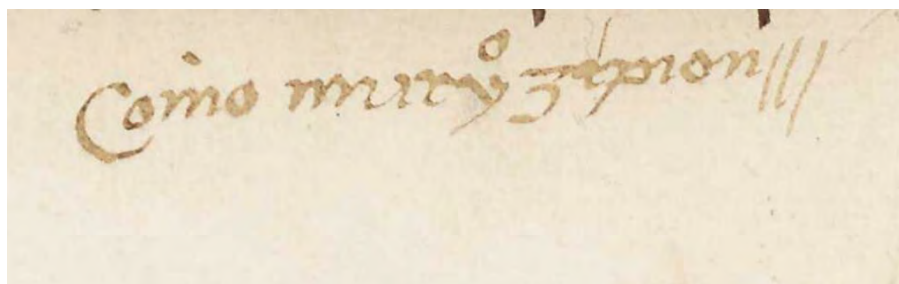 Como murio Zipion